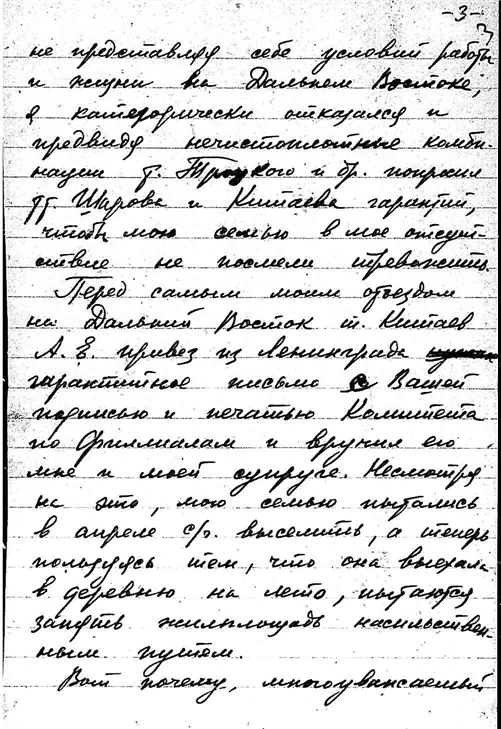 -3-
не представляя себе условий работы
и жизни на Дальнем Востоке,
я категорически отказался и
предвидя нечистоплотные комби-
нации т. Троцкого и др. попросил
тт Шарова и Китаева гарантий,
чтобы мою семью в мое отсут-
ствие не посмели тревожить.
Перед самым моим отъездом
на Дальний Восток т. Китаев
А. Е. привез из Ленинграда
гарантийное письмо с Вашей
подписью и печатью Комитета
по Филлиалам и вручил его
мне и моей супруге. Несмотря
на это, мою семью пытались
в апреле с/г. выселить, а теперь
пользуясь тем, что она выехала
в деревню на лето, пытаются
занять жилплощадь насильствен-
ным путем.
Вот почему, многоуважаемый